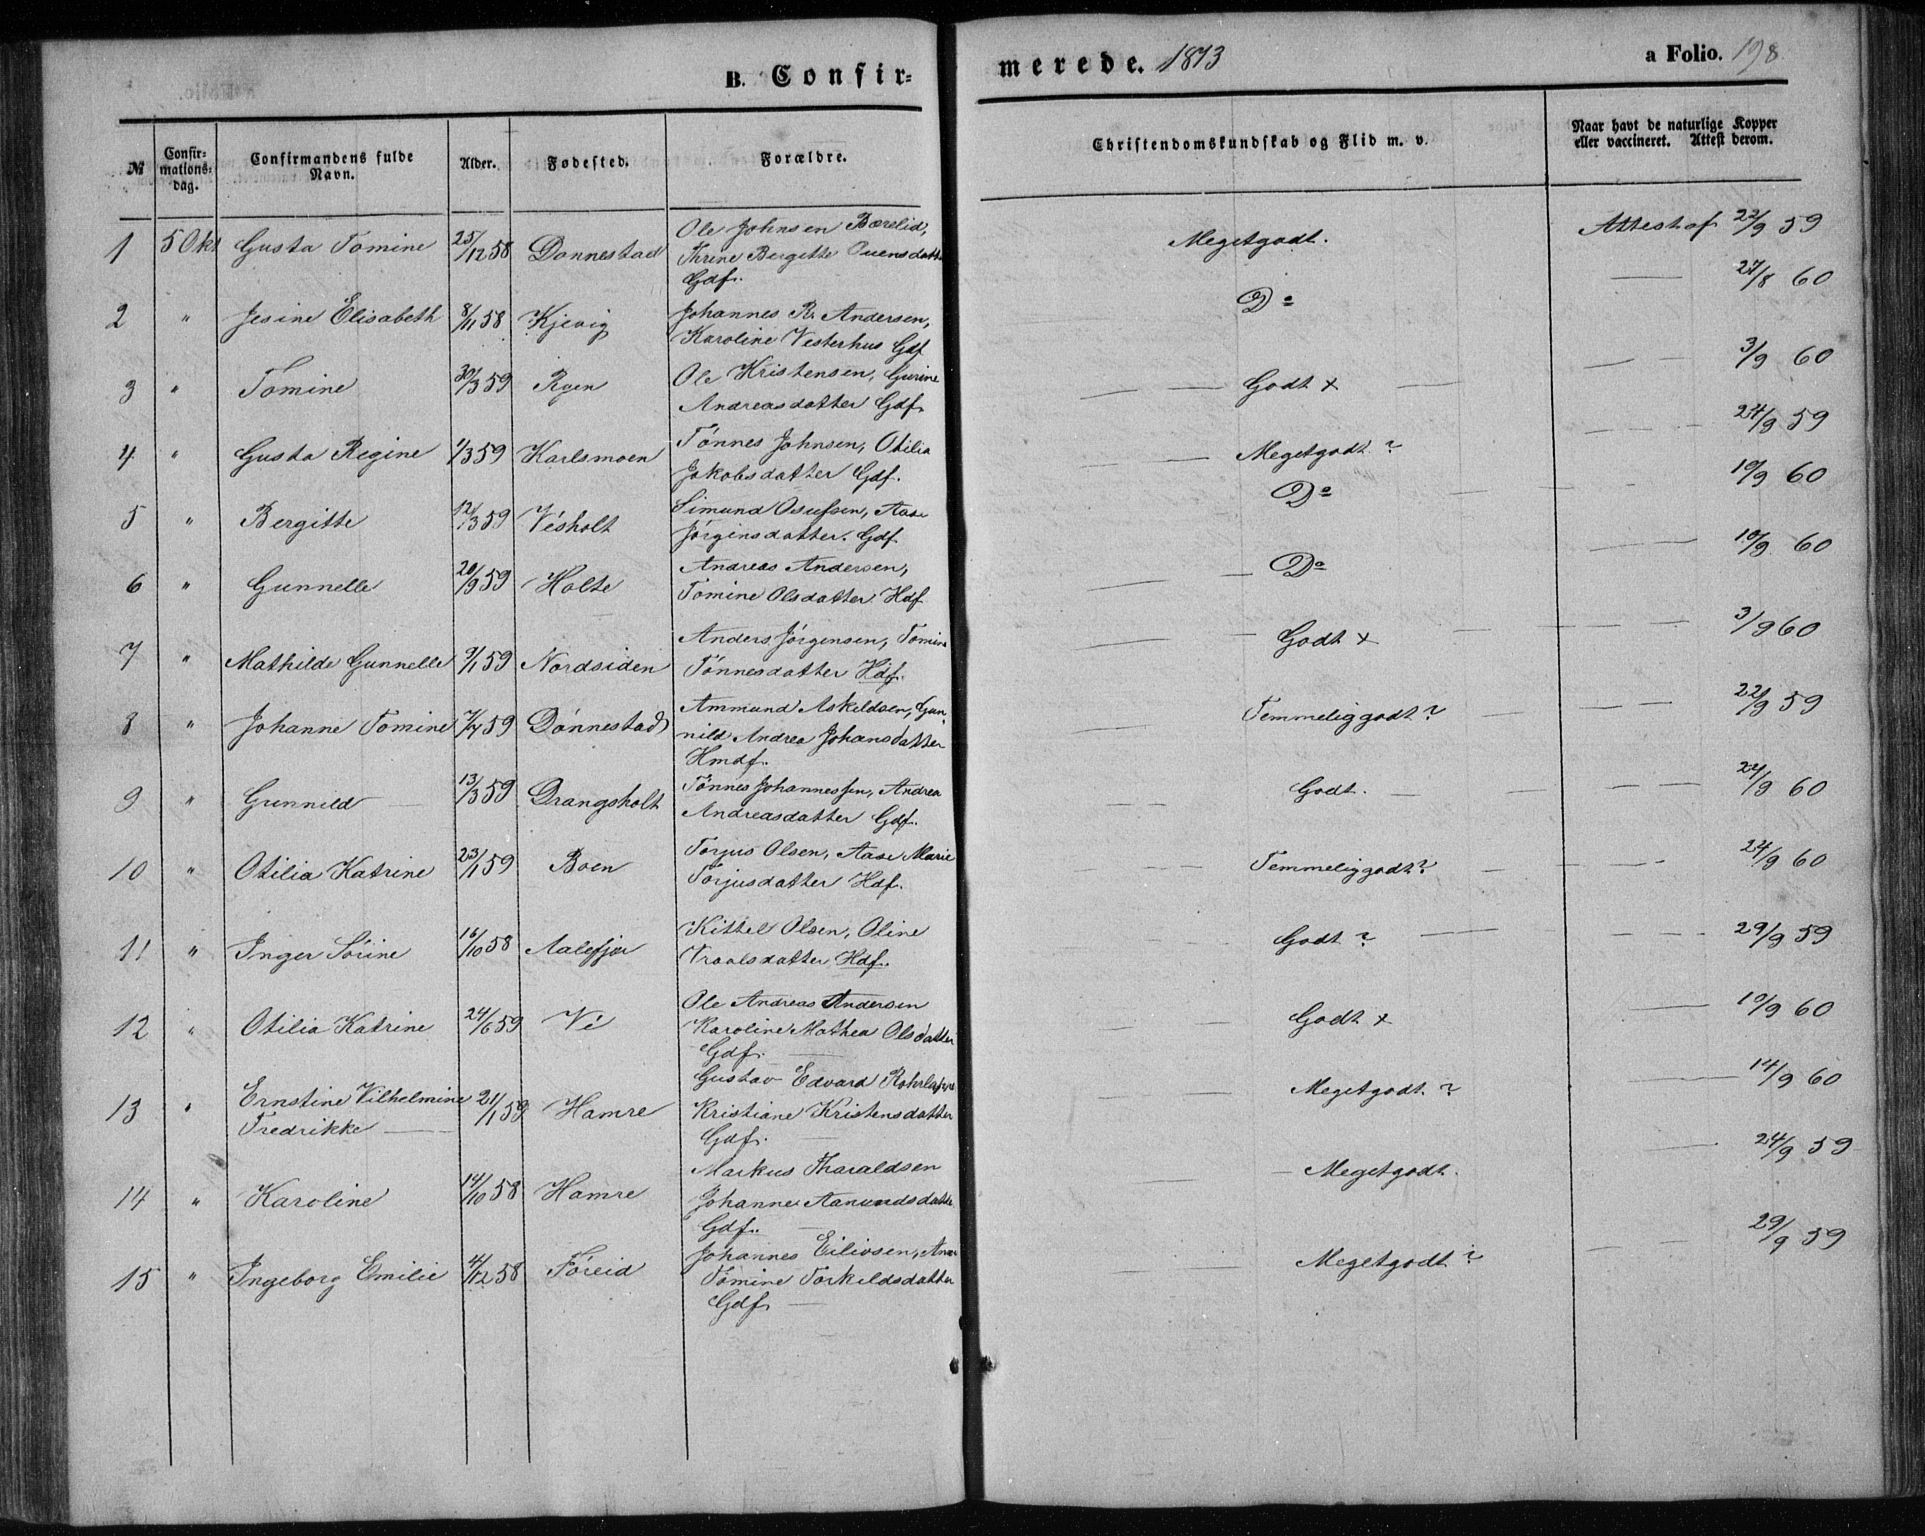 B. Confir-
merede. 1873
a Folio. 198
№
Confir-
mations-
dag.
Confirmandens fulde
Navn.
Alder.
Fødested.
Forældre.
Christendomskundskab og Flid m. v.
Naar havt de naturlige Kopper
eller vaccineret. Attest derom.
1 5 Okt Gusta Tomine 25/12 58 Donnestad Ole Johnsen Bærelid,
Thrine Bergitte Ouensdatter
Gdf. Megetgodt. Attest af 22/9 59
2 " Jesine Elisabeth 8/11 58 Kjevig Johannes R. Andersen,
Karoline Vesterhus Gdf D° 27/8 60
3 " Tomine 30/3 59 Ryen Ole Kristensen, Gurine
Andreasdatter Gdf. Godt x 3/9 60
4 " Gusta Regine 1/3 59 Karlsmoen Tönnes Johnsen, Otilia
Jakobsdatter Gdf. Megetgodt ? 24/9 59
5 " Bergitte 12/3 59 Vésholt Simund Osufsen, Aase
Jörginsdatter. Gdf. D° 10/9 60
6 " Gunnelle 20/9 59 Holte Andreas Andersen,
Tomine Olsdatter Hdf D° 10/9 60
7 " Mathilde Gunnelle 9/1 59 Nordsiden Anders Jörgensen, Tomine
Tönnesdatter Hdf. Godt x 3/9 60
8 " Johanne Tomine 7/4 59 Dönnestad Ammund Askildsen, Gun-
nild Andrea Johansdatter
Hmdf. Temmeliggodt ? 22/9 59
9 " Gunnild 13/3 59 Drangsholt Tönnes Johannessen, Andrea
Andreasdatter Gdf. Godt. 24/9 60
10 " Otilia Katrine 23/1 59 Boen Torjus Olsen, Aase Marie
Torjusdatter Hdf. Temmeliggodt ? 24/9 60
11 " Inger Sörine 16/10 58 Aalefjær Kittel Olsen, Oline
Vraalsdatter Hdf. Godt ? 29/9 59
12 " Otilia Katrine 24/6 59 Vé Ole Andreas Andersen
Karoline Mathea Olsdatter
Gdf. Godt x 10/9 60
13 " Ernstine Vilhelmine
Fredrikke 21/1 59 Hamre Gustav Edvard
Kristiane Kristensdatter
Gdf. Megetgodt. ? 14/9 60
14 " Karoline 14/10 58 Hamre Markus Tharaldsen
Johanne Aanundsdatter
Gdf. Megetgodt. 24/9 59
15 " Ingeborg Emilie 4/12 58 Föreid Johannes Eilivsen, Anne
Tomine Torkildsdatter
Gdf. Megetgodt ? 29/9 59